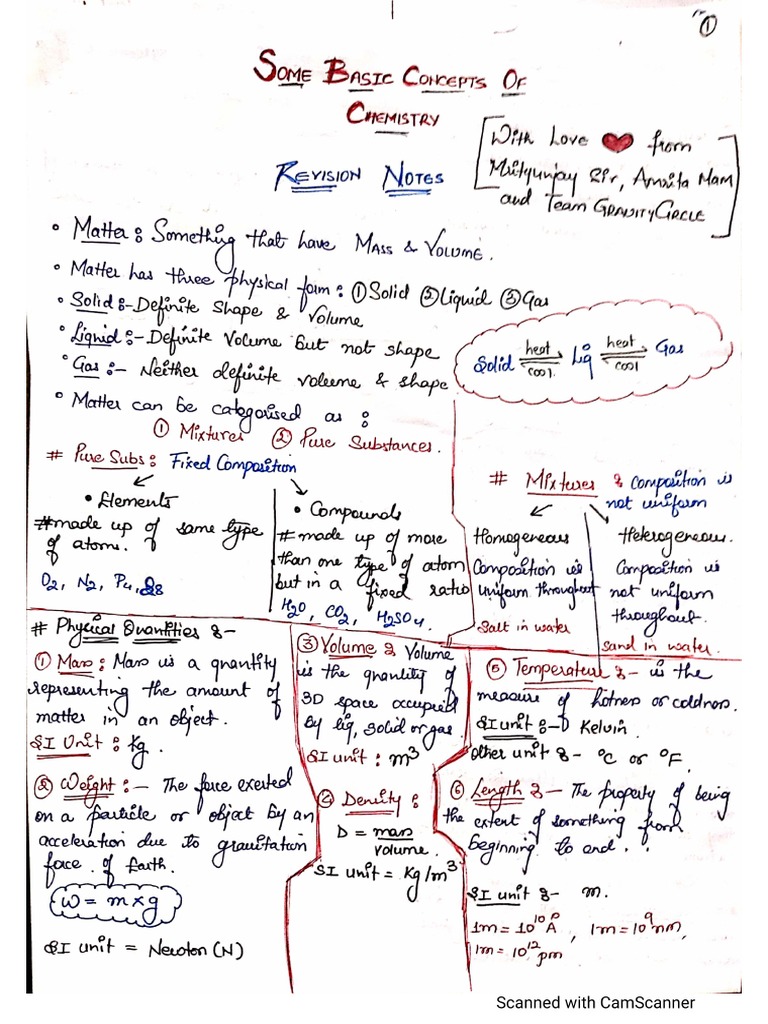 ①
SOME BASIC CONCEPTS OF
CHEMISTRY
REVISION NOTES
[With Love ❤ from
Mrityunjay Sir, Amrita Mam
and Team GRAVITY CIRCLE]
• Matter : Something that have MASS & VOLUME.
• Matter has three physical form : ① Solid ② Liquid ③ Gas
• Solid :- Definite Shape & Volume
• Liquid :- Definite Volume but not shape
• Gas :- Neither definite volume & shape
Solid ⇌ Liq ⇌ Gas
heat heat
cool cool
• Matter can be categorised as :
① Mixtures ② Pure Substances.
# Pure Subs : Fixed Composition
• Elements
# made up of same type
of atoms.
O₂, N₂, P₄, S₈
• Compounds
# made up of more
than one type of atom
but in a fixed ratio
H₂O, CO₂, H₂SO₄.
# Mixtures : composition is
not uniform
Homogeneous
Composition is
uniform throughout
Salt in water
Heterogeneous.
Composition is
not uniform
throughout.
sand in water.
# Physical Quantities :-
① Mass : Mass is a quantity
representing the amount of
matter in an object.
SI Unit : Kg.
② Weight :- The force exerted
on a particle or object by an
acceleration due to gravitation
force of Earth.
W = m × g
SI unit = Newton (N)
③ Volume : Volume
is the quantity of
3D space occupied
by liq, solid or gas
SI unit : m³
④ Density :
D = mass
volume.
SI unit = Kg/m³
⑤ Temperature :- is the
measure of hotness or coldness.
SI unit :- Kelvin.
other unit :- °C or °F.
⑥ Length :- The property of being
the extent of something from
beginning to end.
SI unit :- m.
1m = 10¹⁰ Å, 1m = 10⁹ nm,
1m = 10¹² pm
Scanned with CamScanner